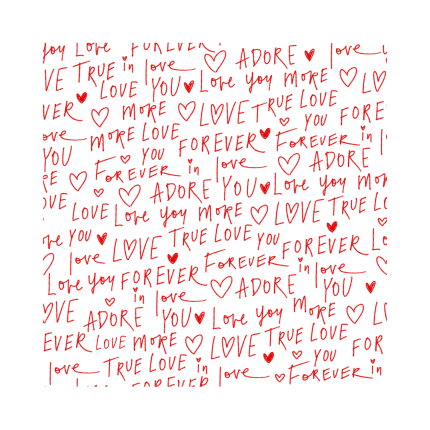 you Love FOREVER
VE TRUE in love ADORE love
LOVE YOU Love you MORE LO
VER MORE LOVE TRUE LOVE
ove MORE LOVE FOREVER YOU FORE
YOU FOREVER YOU FOREVER in l
RE FOREVER in love ADORE
OVE ADORE YOU Love you MOR
LOVE Love you MORE LOVE TRUE LO
re you LOVE TRUE LOVE YOU FOREVER LO
love FOREVER in love
Love you FOREVER FOREVER in love
OVE in love ADORE YOU
ADORE YOU Love you MORE LO
EVER LOVE MORE LOVE TRUE LOVE
love TRUE LOVE YOU FOR
in love FOREVER in